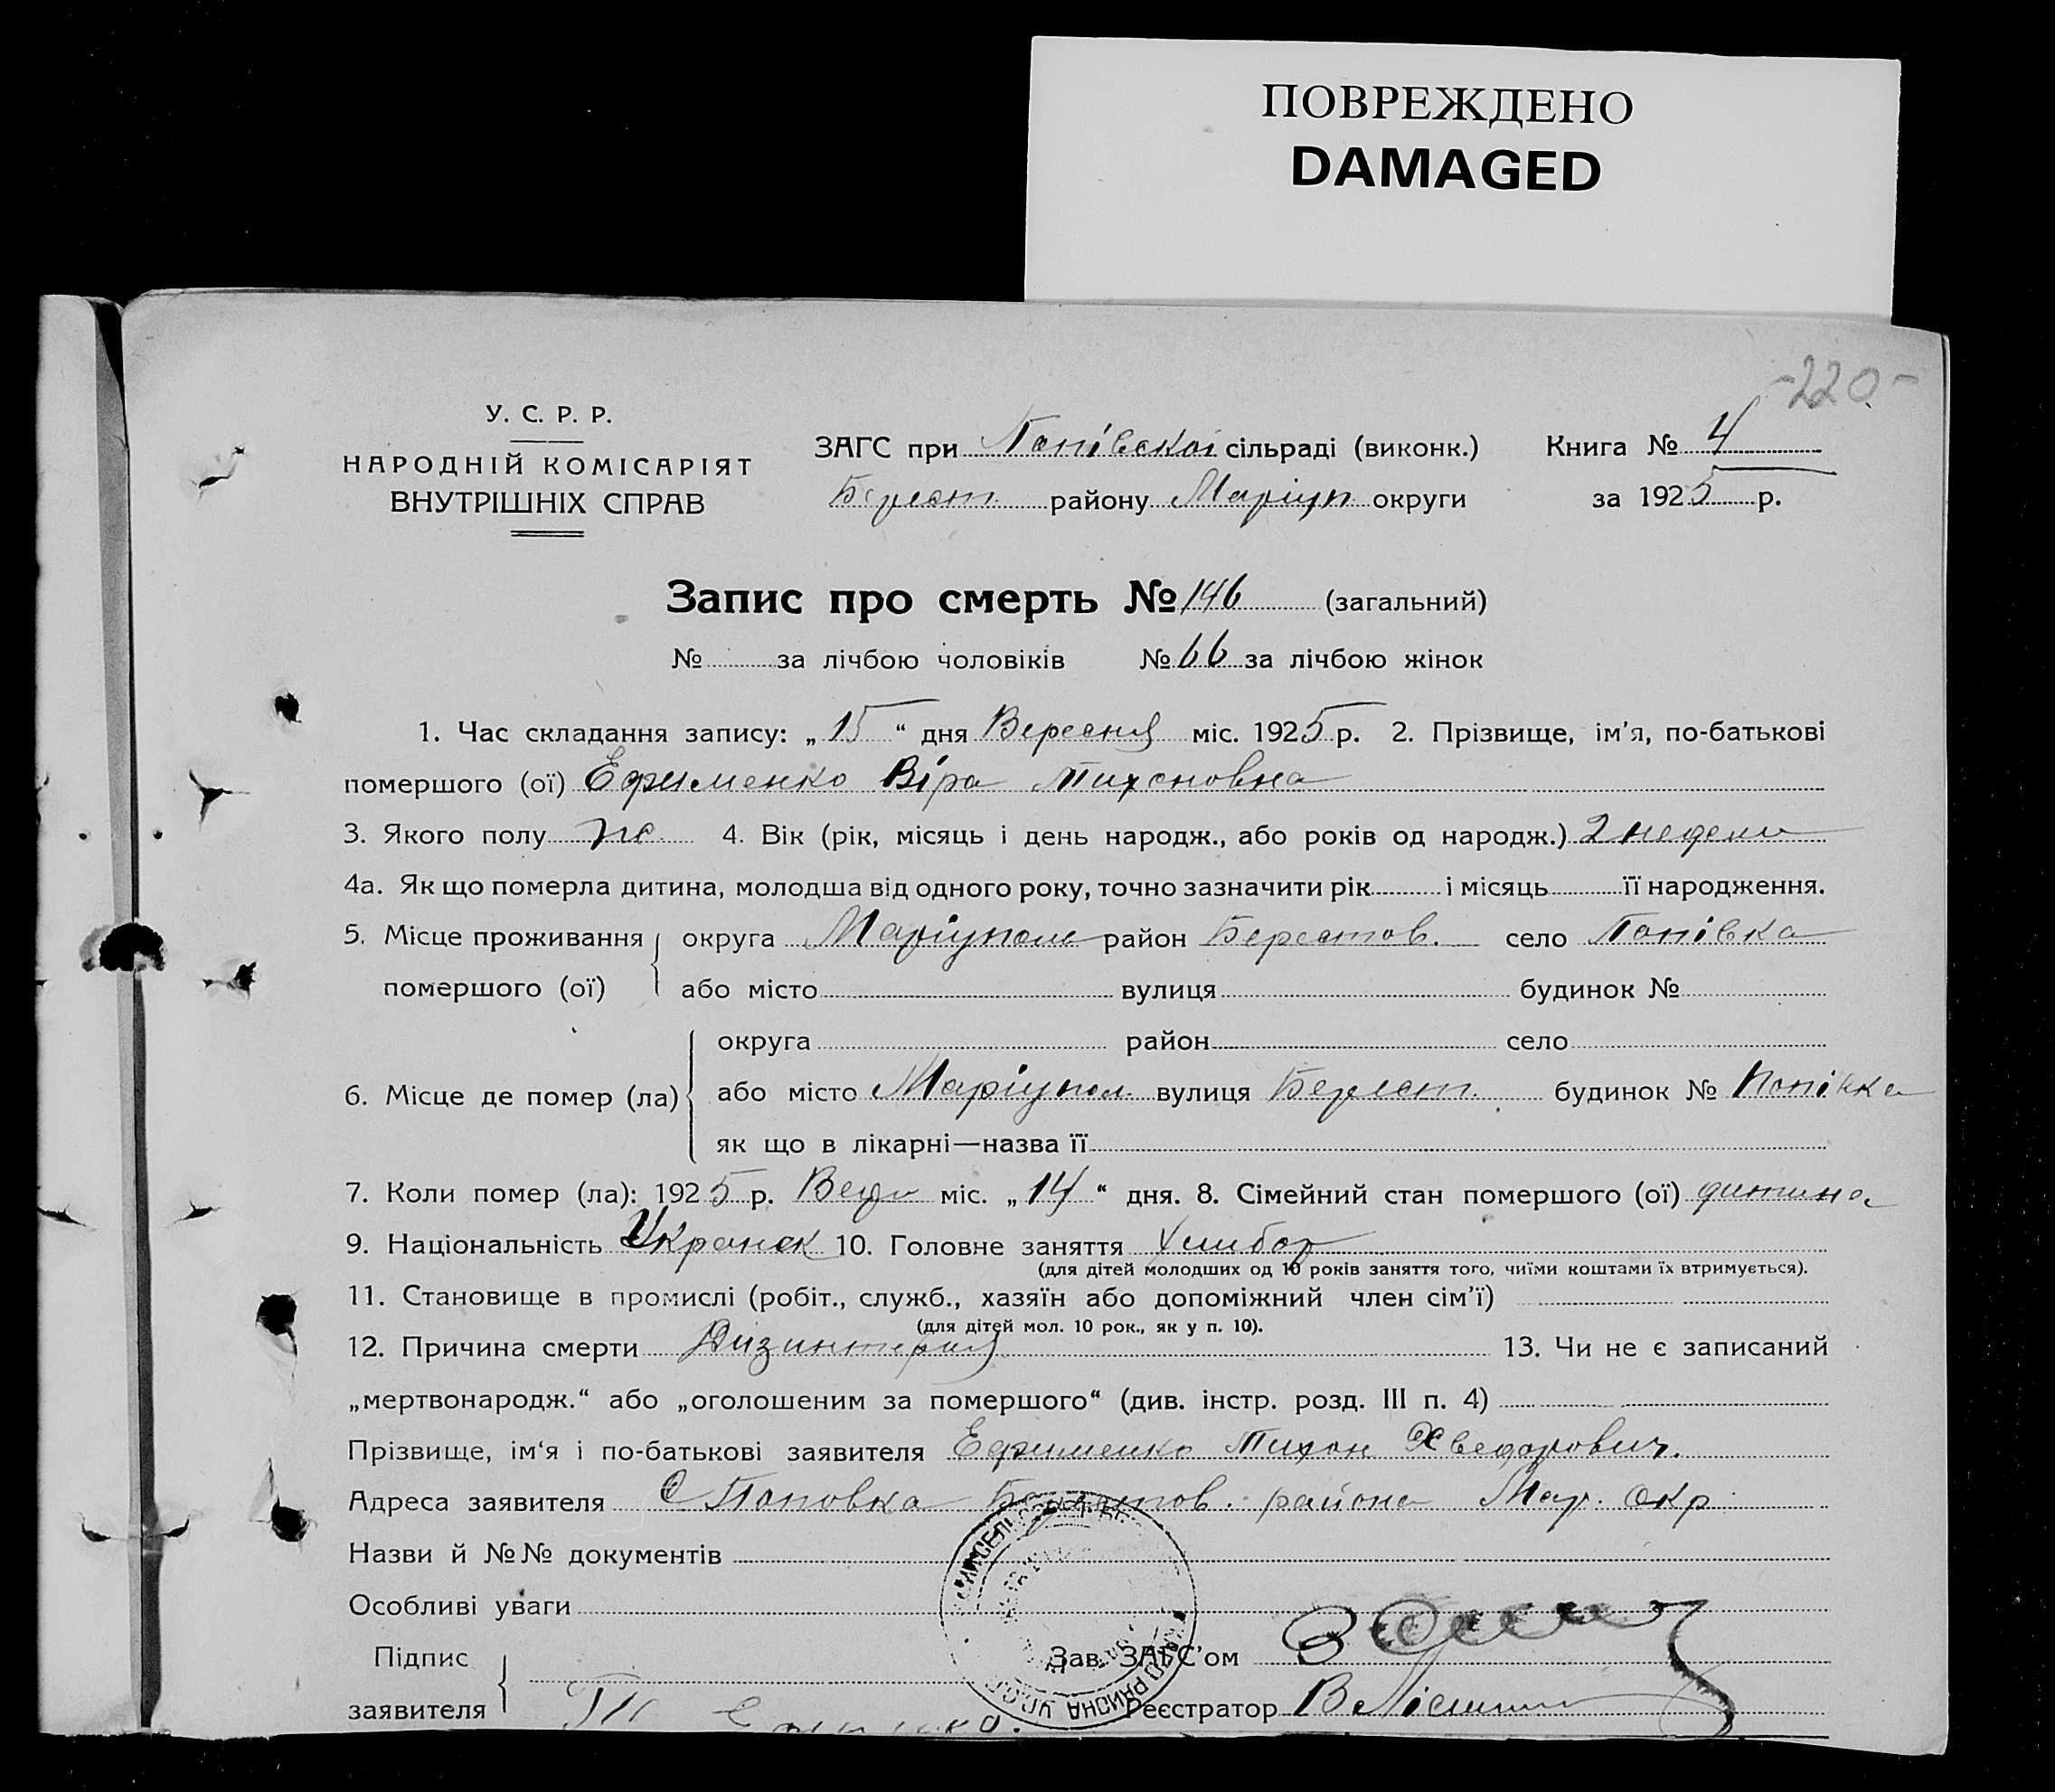 ПОВРЕЖДЕНО
DAMAGED
-220-
У. С. Р. Р.
НАРОДНІЙ КОМІСАРІЯТ
ВНУТРІШНІХ СПРАВ
ЗАГС при Попівскої сільраді (виконк.)
Берест. району Маріуп. округи
Книга № 4
за 1925 р.
Запис про смерть № 146 (загальний)
№ за лічбою чоловіків № 66 за лічбою жінок
1. Час складання запису: „15“ дня Вересня міс. 1925 р. 2. Прізвище, ім'я, по-батькові
помершого (ої) Ефименко Віра Тихоновна
3. Якого полу ж. 4. Вік (рік, місяць і день народж., або років од народж.) 2 недели
4а. Як що померла дитина, молодша від одного року, точно зазначити рік і місяць її народження.
5. Місце проживання помершого (ої) округа Маріуполь район Берестов. село Попівка
або місто вулиця будинок №
6. Місце де помер (ла) округа район село
або місто Маріупол. вулиця Берест. будинок № Попівка
як що в лікарні—назва її
7. Коли помер (ла): 1925 р. міс. „14“ дня. 8. Сімейний стан помершого (ої) дитина
9. Національність 10. Головне заняття Хлибор
(для дітей молодших од 10 років заняття того, чиїми коштами їх втримується).
11. Становище в промислі (робіт., служб., хазяїн або допоміжний член сім'ї)
(для дітей мол. 10 рок., як у п. 10).
12. Причина смерти Дизинтерия 13. Чи не є записаний
„мертвонародж.“ або „оголошеним за помершого“ (див. інстр. розд. III п. 4)
Прізвище, ім'я і по-батькові заявителя Ефименко Тихон Хведорович.
Адреса заявителя С Поповка Берестов. района Мар. окр
Назви й №№ документів
Особливі уваги
Підпис заявителя
Зав. ЗАГС'ом
Реєстратор